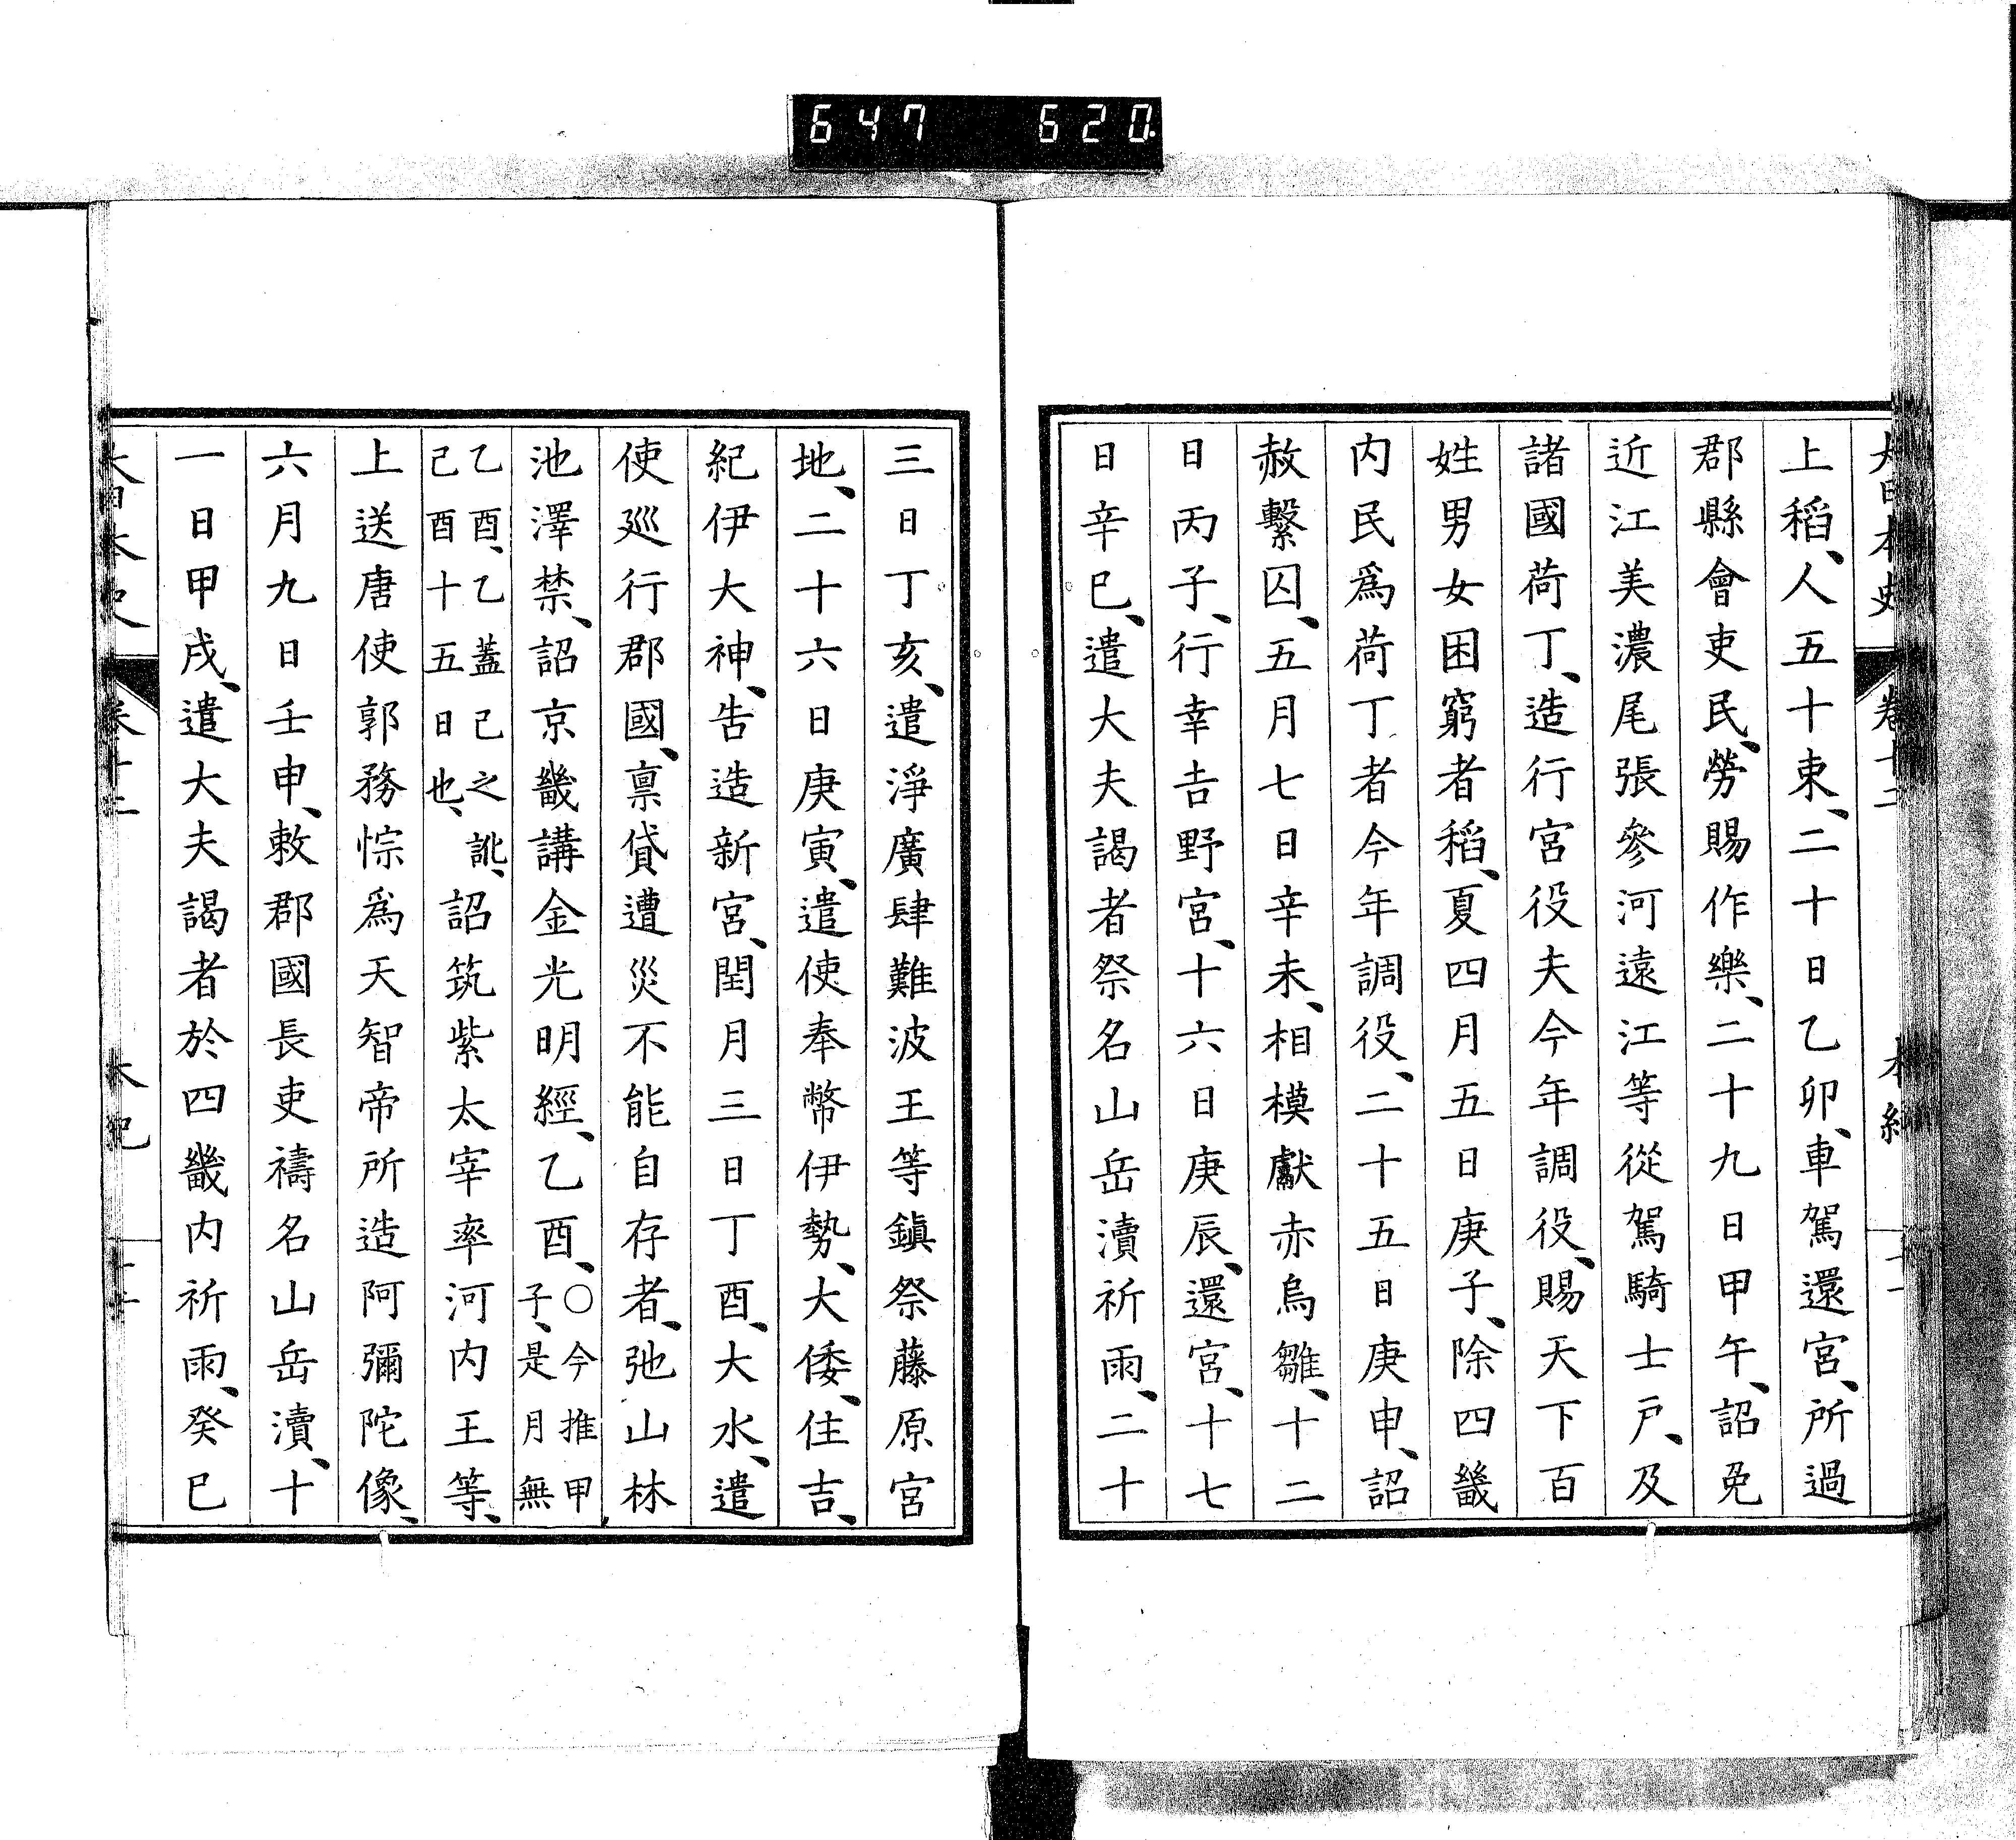 647 620
大日本史 卷十二 本紀
上稻、人五十束、二十日乙卯、車駕還宮、所過
郡縣會吏民、勞賜作樂、二十九日甲午、詔免
近江美濃尾張參河遠江等從駕騎士戸、及
諸國荷丁、造行宮役夫今年調役、賜天下百
姓男女困窮者稻、夏四月五日庚子、除四畿
内民爲荷丁者今年調役、二十五日庚申、詔
赦繫囚、五月七日辛未、相模獻赤烏雛、十二
日丙子、行幸吉野宮、十六日庚辰、還宮、十七
日辛巳、遣大夫謁者祭名山岳瀆祈雨、二十
三日丁亥、遣淨廣肆難波王等鎭祭藤原宮
地、二十六日庚寅、遣使奉幣伊勢、大倭、住吉、
紀伊大神、告造新宮、閏月三日丁酉、大水、遣
使廵行郡國、禀貸遭災不能自存者、弛山林
池澤禁、詔京畿講金光明經、乙酉、〇今推甲子、是月無
乙酉、乙蓋己之訛、己酉十五日也、詔筑紫太宰率河内王等、
上送唐使郭務悰爲天智帝所造阿彌陀像、
六月九日壬申、敕郡國長吏禱名山岳瀆、十
一日甲戌、遣大夫謁者於四畿内祈雨、癸巳
大日本史 卷十二 本紀